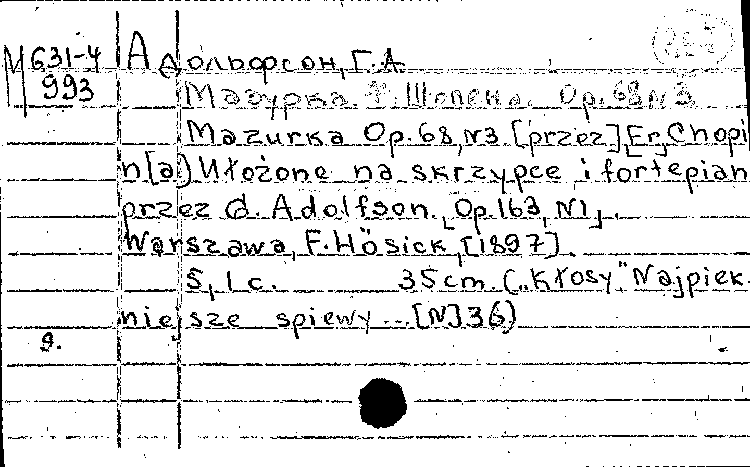 М 631-4
993
Адольфсон, Г. А.
Мазурка Ф. Шопена. Op. 68 N 3
Mazurka Op. 68, N3 [przez] Fr. Chopi
n[a] Ułożone na skrzypce i fortepian
przez G. Adolfson. [Op. 163, N1].
Warszawa, F. Hösick, [1897].
5, 1 c. 35 cm. („Kłosy" Najpięk
niejsze spiewy... [N] 36)
9.